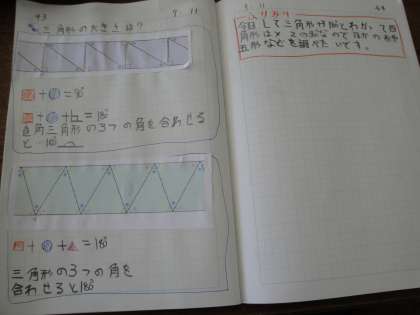 43
9.11
三角形の大きさは?
あ + い = 90°
あ + い + = 180°
直角三角形の3つの角を合わせる
と180°
+ + = 180°
三角形の3つの角を
合わせると180°
9.11
44
ふりかえり
して三角形は180°とわかって四
角形は×2の360°なのでほかの
五形などを調べたいです。